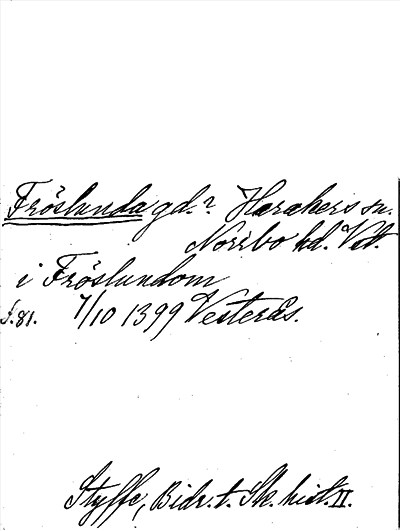 Fröslunda gd.? Harakers sn.
Norrbo hd. Vstl.
i Fröslundom
s. 81. 7/10 1399 Vesterås.
Styffe, Bidr. t. Sk. hist. II.